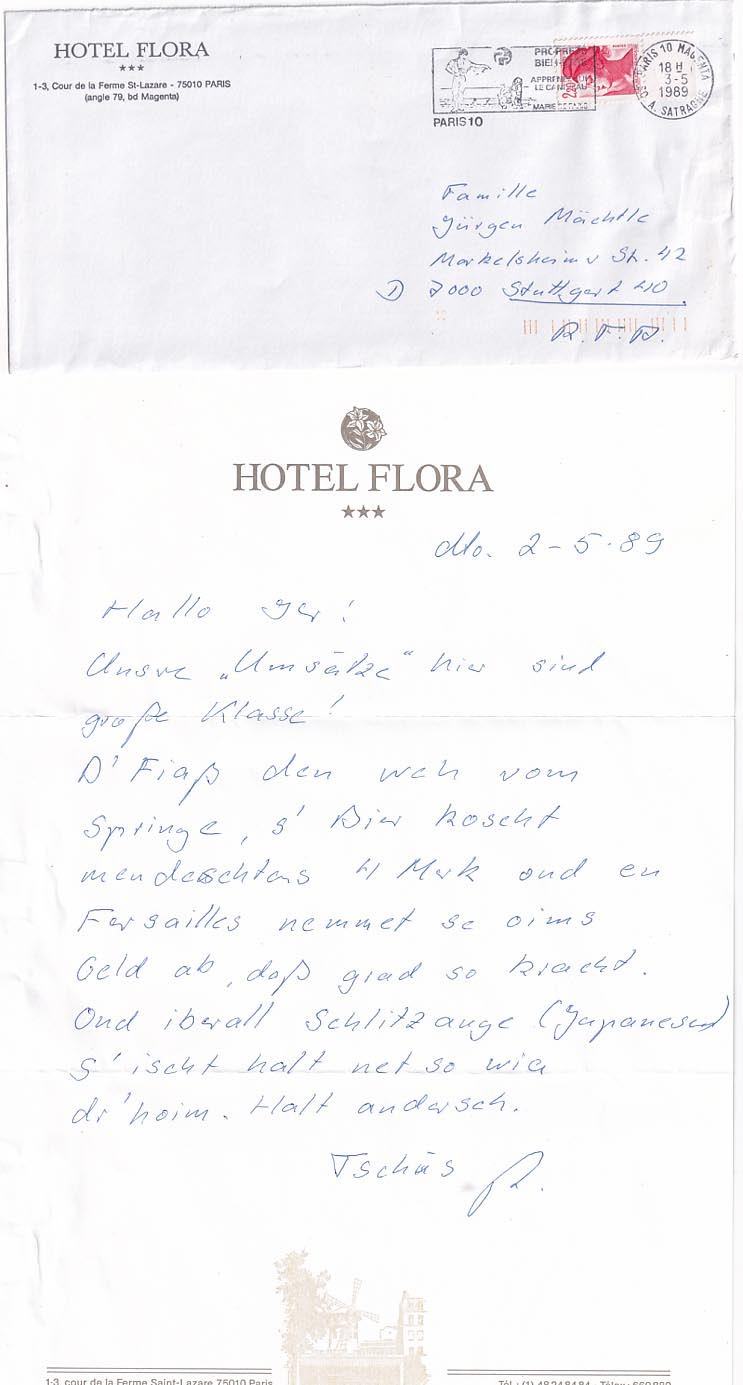 HOTEL FLORA
★★★
1-3, Cour de la Ferme St-Lazare - 75010 PARIS
(angle 79, bd Magenta)
APPRENEZ LUI
LE CANIVEAU
MAIRIE DE PARIS
PARIS 10
PARIS 10 MAGENTA
18 H
3-5
1989
Famille
Jürgen Mächtle
Markelsheimer St. 42
D 7000 Stuttgart 40
R.F.A.
HOTEL FLORA
★★★
Mo. 2-5.89
Hallo Jer!
Unsre „Umsätze“ hier sind
große Klasse!
D' Fiaß den weh vom
Springe, s' Bier koscht
mendeschtens 4 Mark ond en
Fersailles nemmet se oims
Geld ab, daß grad so kracht.
Ond iberall Schlitzauge (Japanesen)
s' ischt halt net so wia
dr'hoim. Halt andersch.
Tschüs R.
1-3, cour de la Ferme Saint-Lazare 75010 Paris